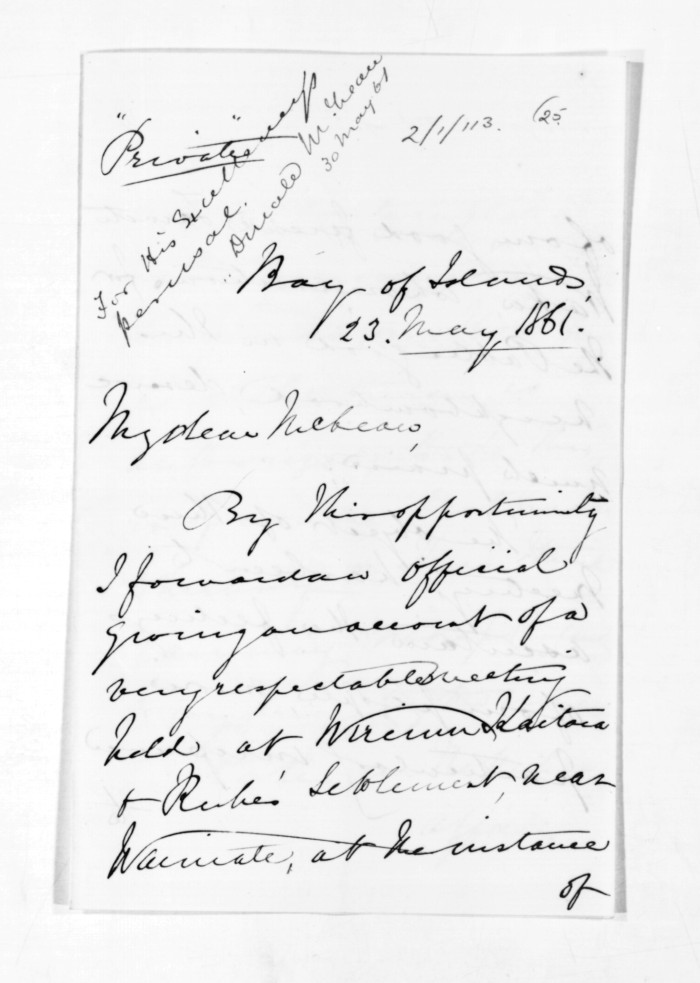 "Private"
For His Excellency's
perusal.
Donald McLean
30 May 61
2/1/113.
(25.
Bay of Islands
23. May 1861.
My dear McLean,
By this opportunity
I forward an official
giving an account of a
very respectable meeting
held at Wiremu Kaitara
& Rube's Settlement, near
Waimate, at the instance
of